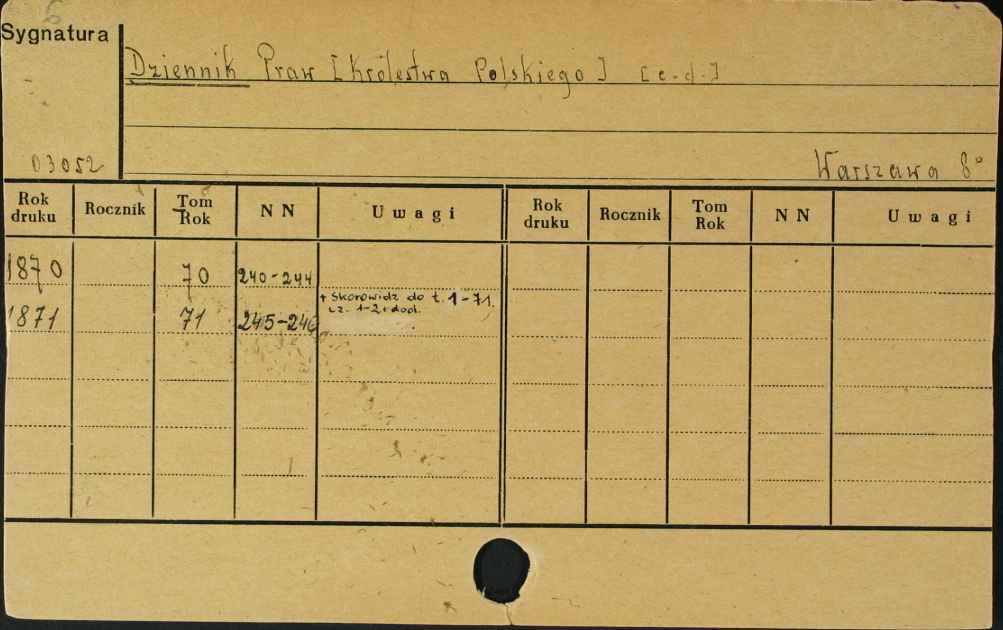 6
Sygnatura
Dziennik Praw [Królestwa Polskiego] [c.d.]
03052
Warszawa 8°
Rok druku Rocznik Tom Rok NN Uwagi Rok druku Rocznik Tom Rok NN Uwagi
1870 70 240-244
+ Skorowidz do t. 1-71.
cz. 1-2 i dod.
1871 71 245-246